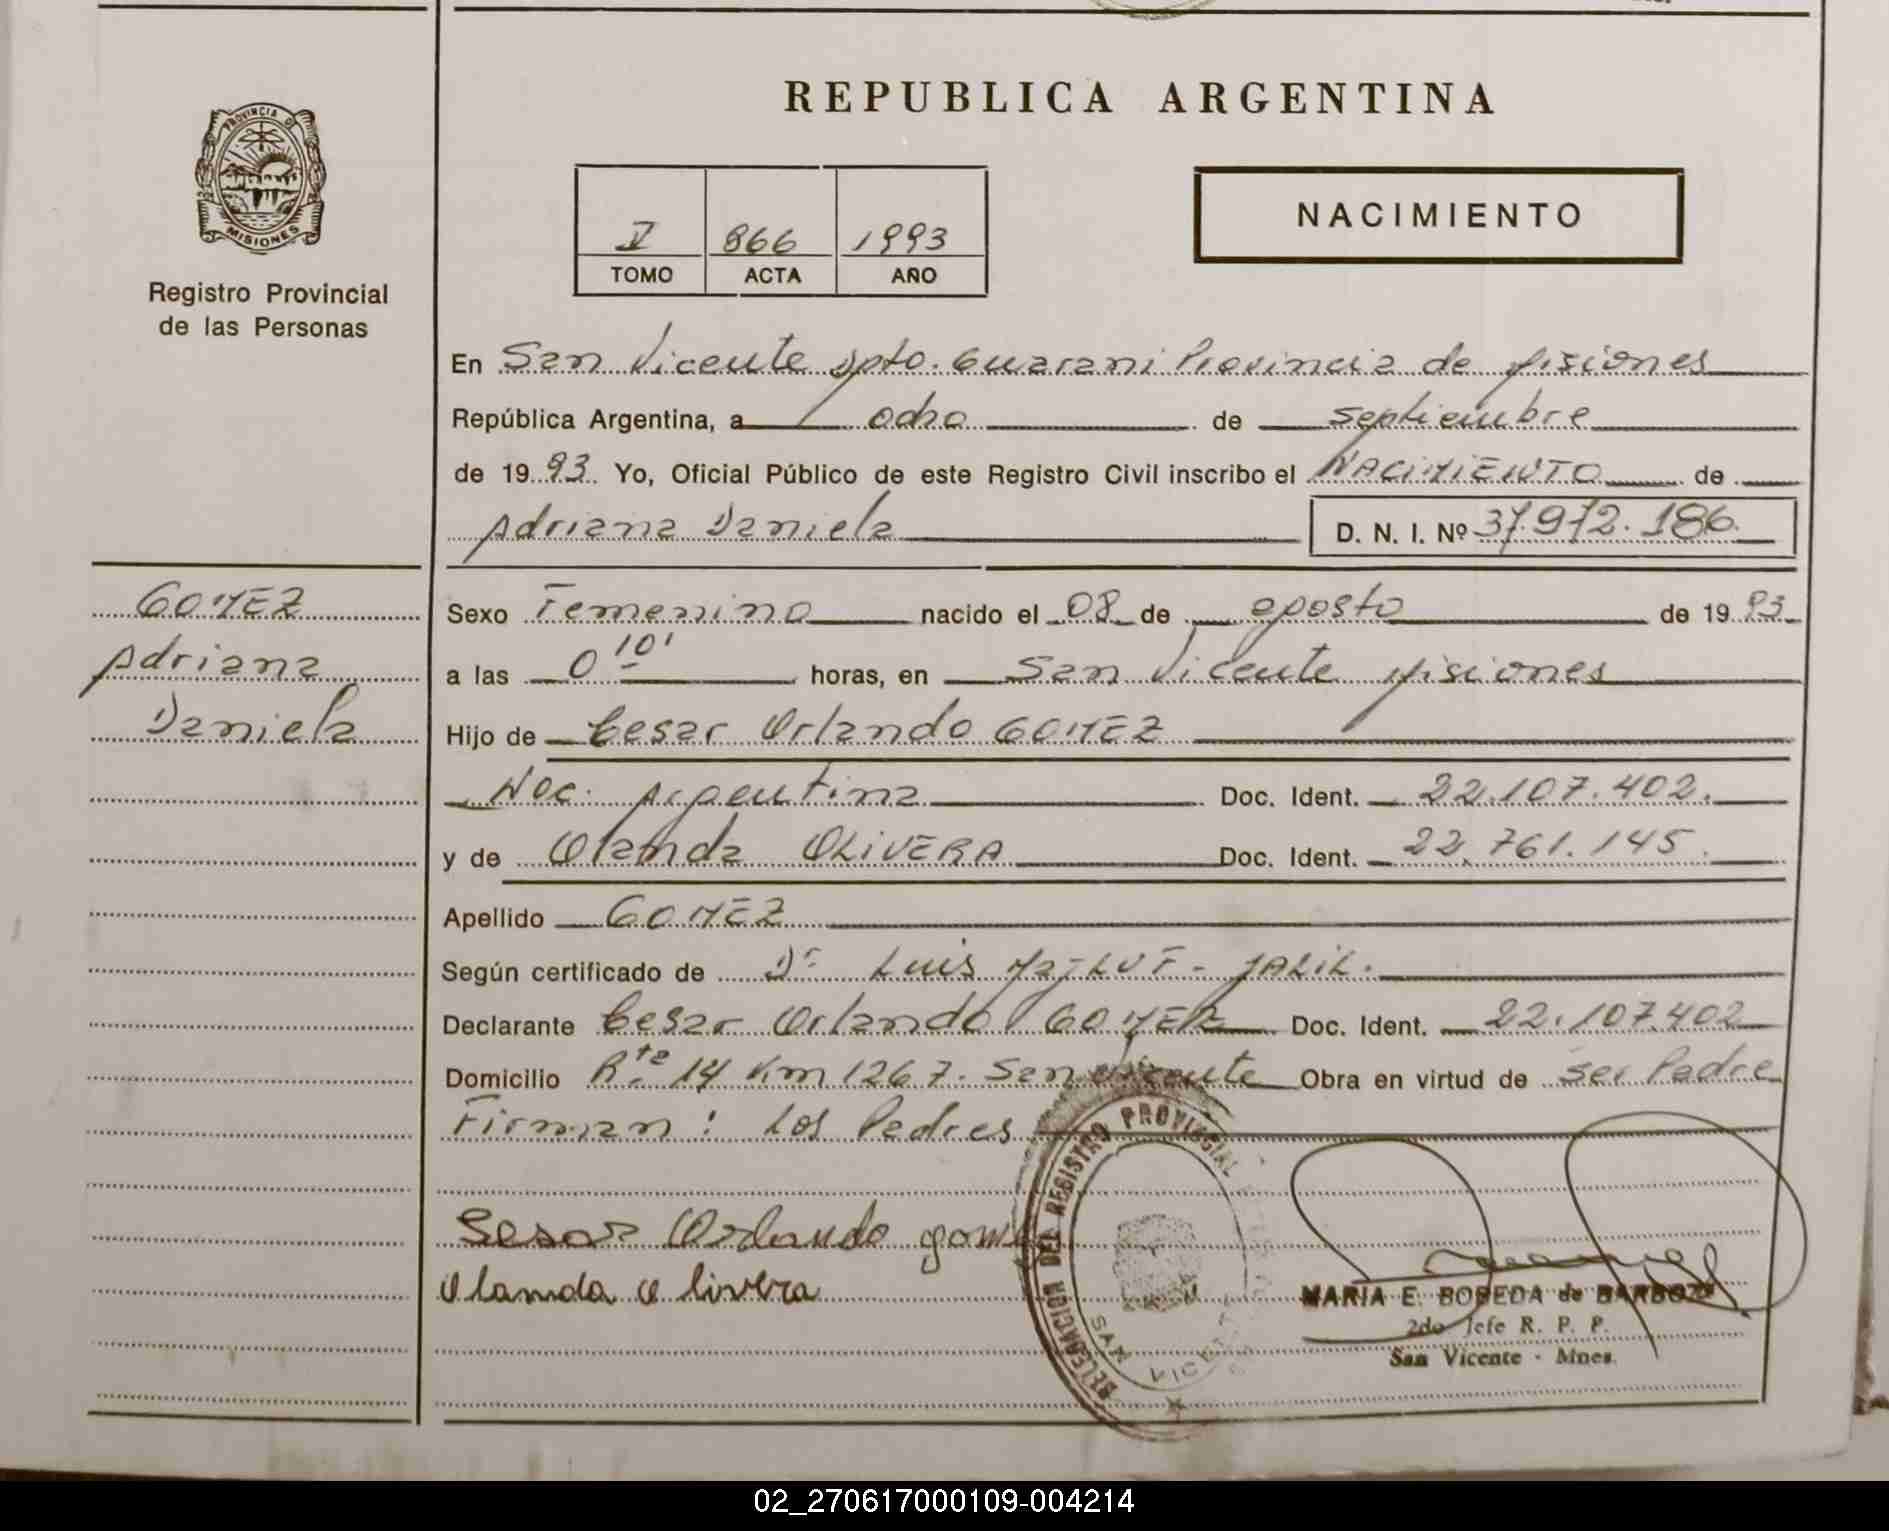 REPUBLICA ARGENTINA
PROVINCIA DE
MISIONES
Registro Provincial
de las Personas
V 866 1993
TOMO ACTA AÑO
NACIMIENTO
En San Vicente Dpto. Guarani Provincia de Misiones
República Argentina, a ocho de septiembre
de 19 93 Yo, Oficial Público de este Registro Civil inscribo el NACIMIENTO de
Adriana Daniela D. N. I. Nº 37.972.186.
GOMEZ
Adriana
Daniela
Sexo Femenino nacido el 08 de agosto de 19 93
a las 0 10' horas, en San Vicente Misiones
Hijo de Cesar Orlando GOMEZ
Nac. Argentina Doc. Ident. 22.107.402.
y de Olanda OLIVERA Doc. Ident. 22.761.145.
Apellido GOMEZ
Según certificado de Dr Luis - JALIL.
Declarante Cesar Orlando GOMEZ Doc. Ident. 22.107.402
Domicilio Rta 14 Km 1267. San Vicente Obra en virtud de ser Padre
Firman: Los Padres
Sesar Orlando gomez
Olanda Olivera
DELEGACION DEL REGISTRO PROVINCIAL
SAN VICENTE
MARIA E. BOBEDA de BARBOZA
2do Jefe R. P. P.
San Vicente - Mnes.
02_270617000109-004214